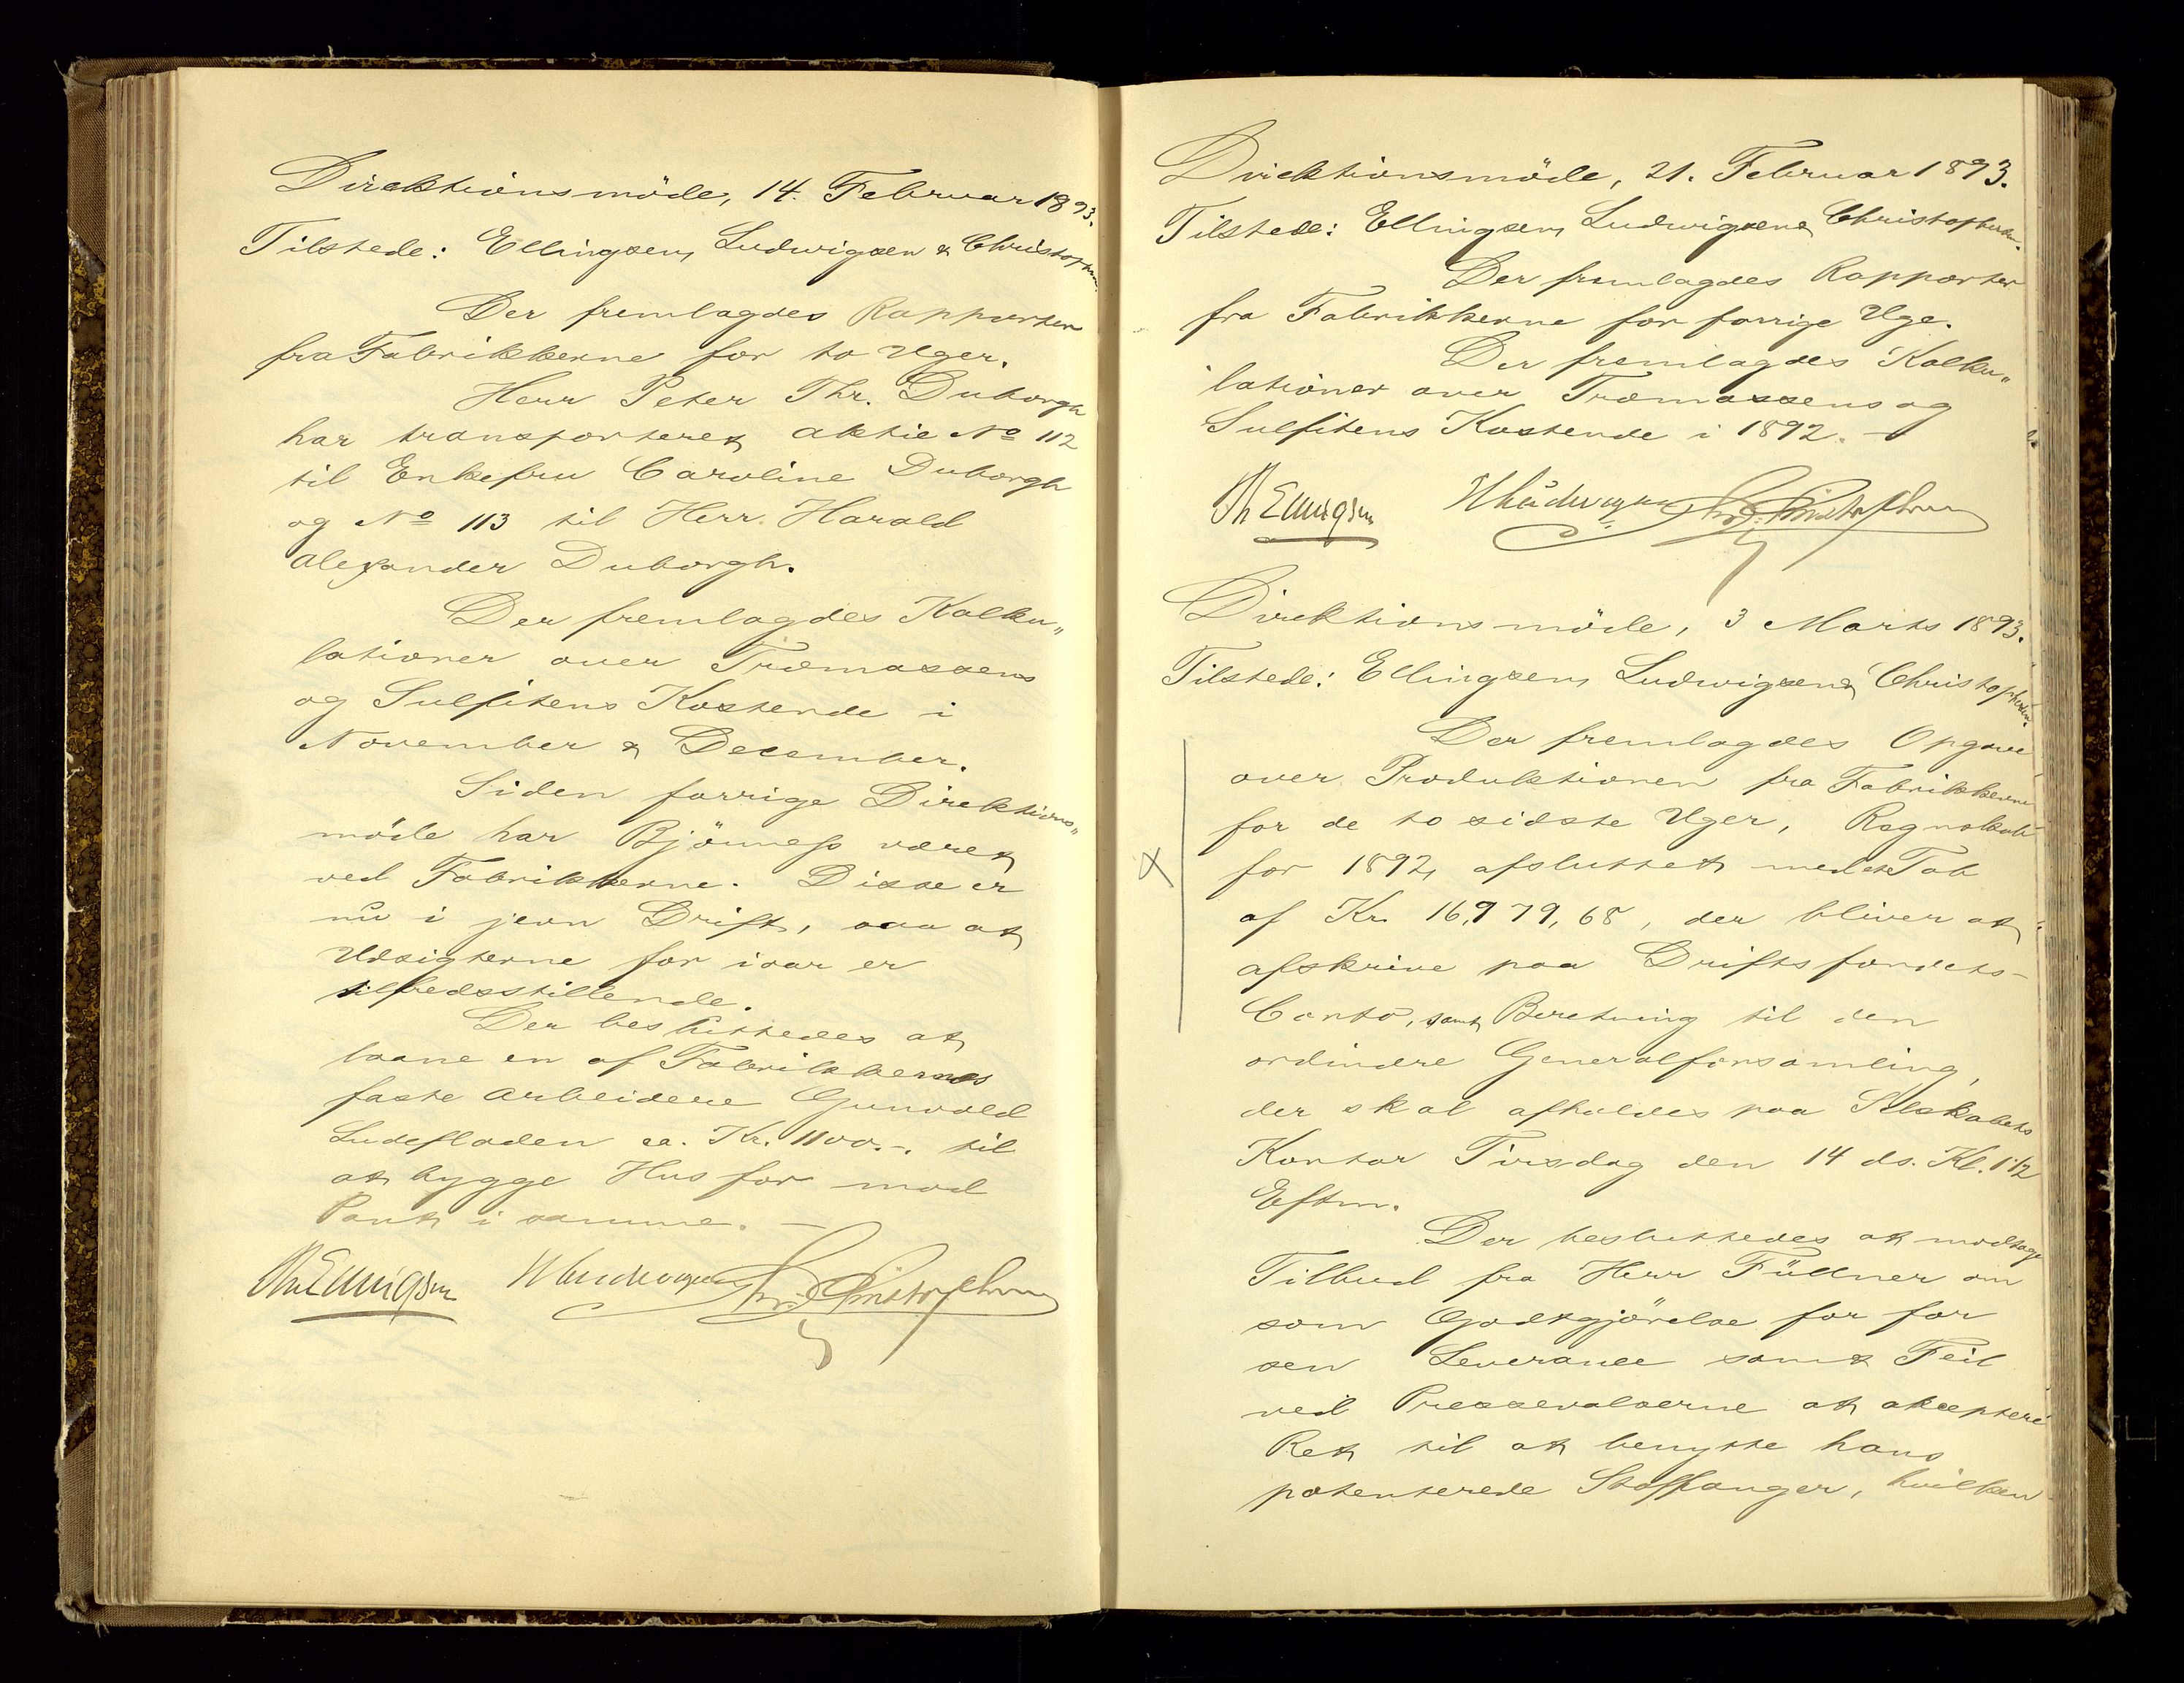 Direktionsmöde, 14. Februar 1893.
Tilstede: Ellingsen, Ludwigsen & Christophersen.
Der fremlagdes Rapporter
fra Fabrikkerne for to Uger.
Herr Peter Thr. Duborgh
har transporteret Aktie No 112
til Enkefru Caroline Duborgh
og No 113 til Herr Harald
Alexander Duborgh.
Der fremlagdes Kalku„
lationer over Træmassens
og Sulfitens Kostende i
November & December.
Siden forrige Direktions„
möde har Bjönness været
ved Fabrikkerne. Disse er
nu i jevn Drift, saa at
Udsigterne for iaar er
tilfredsstillende.
Der besluttedes at
laane en af Fabrikkernes
faste Arbeidere Gunvald
Ludefladen ca. Kr. 1100.-. til
at bygge Hus for mod
Pant i samme. —
Th Ellingsen WLudwigsen Chr. Christophersen
Direktionsmöde, 21. Februar 1893.
Tilstede: Ellingsen, Ludwigsen & Christophersen.
Der fremlagdes Rapporter
fra Fabrikkerne for forrige Uge.
Der fremlagdes Kalku„
lationer over Træmassens og
Sulfitens Kostende i 1892. —
Th Ellingsen WLudwigsen Chr. Christophersen
Direktionsmöde, 3 Marts 1893.
Tilstede: Ellingsen, Ludwigsen & Christophersen.
Der fremlagdes Opgave
over Produktionen fra Fabrikkerne
for de to sidste Uger, Regnskab
for 1892, afsluttet med et Tab
af Kr. 16,979,68, der bliver at
afskrive paa Driftsfondets-
Conto, samt Beretning til den
ordinære Generalforsamling,
der skal afholdes paa Selskabets
Kontor Tirsdag den 14 ds. Kl. 1 1/2
Eftm.
Der besluttedes at modtage
Tilbud fra Herr Füllner om
som Godtgjörelse for for
sen Leverance samt Feil
ved Pressevalserne at akseptere
Ret til at benytte hans
patenterede Stoffanger, hvilken